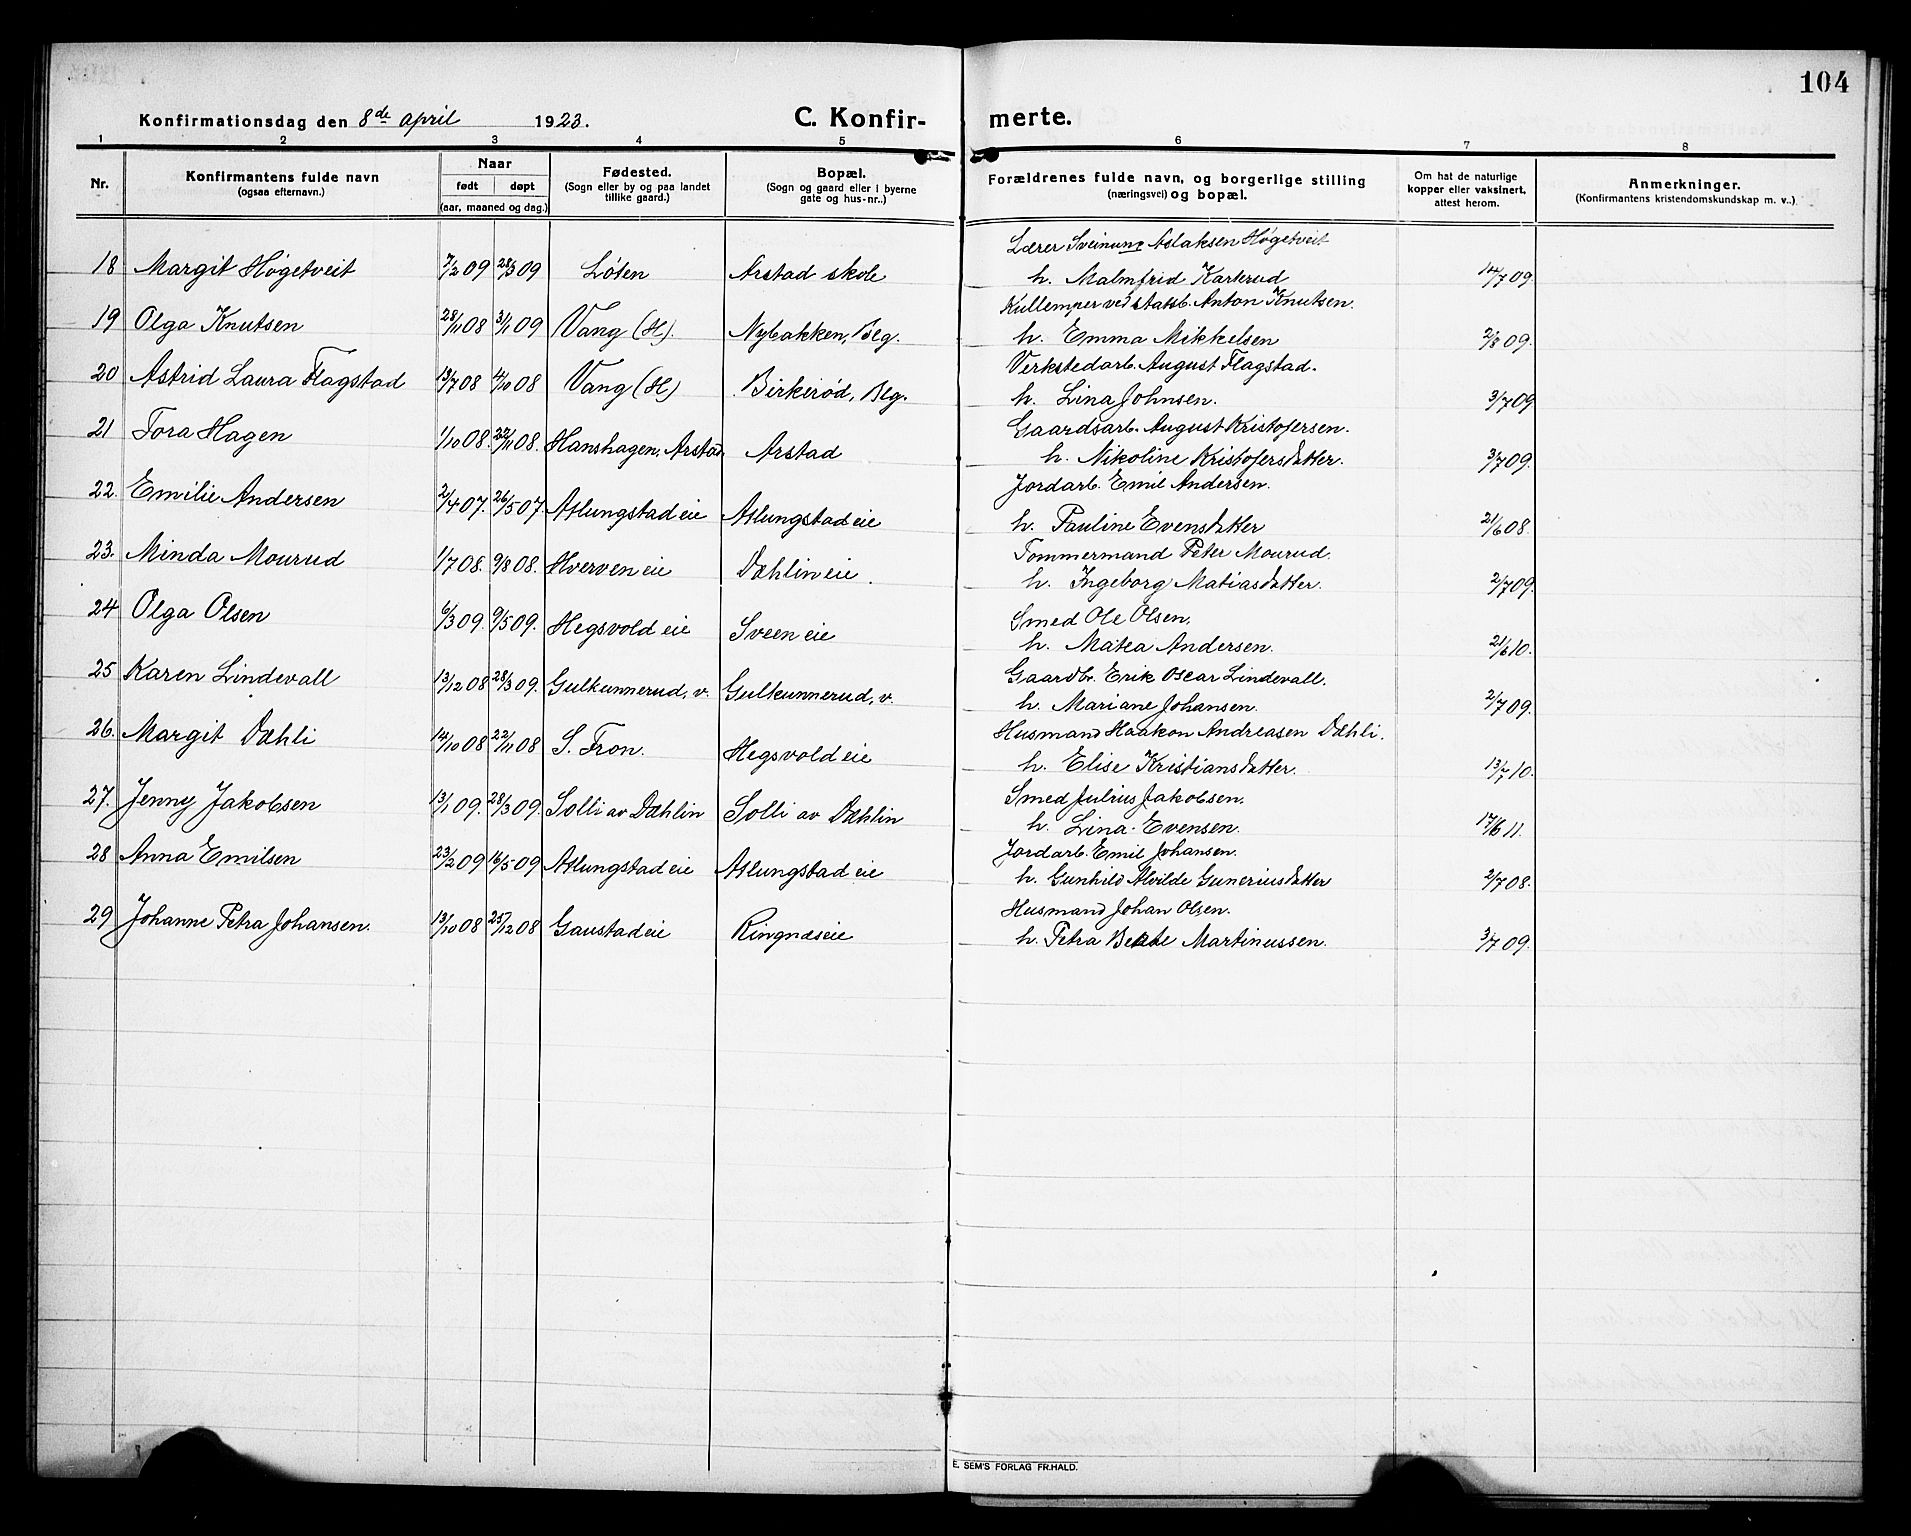 104
Konfirmationsdag den 8de april 1923. C. Konfir- merte.
1 2 3 4 5 6 7 8
Nr. Konfirmantens fulde navn (ogsaa efternavn.) Naar født døpt (aar, maaned og dag.) Fødested. (Sogn eller by og paa landet tillike gaard.) Bopæl. (Sogn og gaard eller i byerne gate og hus-nr..) Forældrenes fulde navn, og borgerlige stilling (næringsvei) og bopæl. Om hat de naturlige kopper eller vaksinert, attest herom. Anmerkninger. (Konfirmantens kristendomskundskap m. v..)
Lærer Sveinung Aslaksen Høgetveit
18 Margit Høgetveit 7/2 09 28/3 09 Løten Arstad skole h. Malmfrid Karterud 14/7 09.
Kullemper ved statsb. Anton Knutsen.
19 Olga Knutsen 28/11 08 3/1 09 Vang (H). Nybakken, Blg. h. Emma Mikkelsen 2/8 09.
Verkstedarb. August Flagstad.
20 Astrid Laura Flagstad 13/7 08 4/10 08 Vang (H) Birkerød, Blg. h. Lina Johnsen. 3/7 09
Gaardsarb. August Kristofersen.
21 Tora Hagen 1/10 08. 22/11 08. Hanshagen, Arstad Arstad h. Nikoline Kristofersdatter. 3/7 09.
Jordarb. Emil Andersen.
22. Emilie Andersen 2/4 07. 26/5 07. Atlungstad eie Atlungstad eie h. Pauline Evensdatter 21/6 08.
Tømmermand Peter Mourud.
23. Minda Mourud 1/7 08. 9/8 08. Hverven eie Dæhlin eie. h. Ingeborg Matiasdatter. 2/7 09.
24 Olga Olsen 6/3 09. 9/5 09. Hegsvold eie Sveen eie Smed Ole Olsen.
h. Matea Andersen. 21/6 10.
25 Karen Lindevall 13/12 08 28/3 09. Gulkunnerud, v. Gulkunnerud, v. Gaardbr. Erik Oscar Lindevall.
h. Mariane Johansen. 2/7 09.
26. Margit Dæhli 14/10 08 22/11 08 S. Fron. Hegsvold eie Husmand Haakon Andreasen Dæhli.
h. Elise Kristiansdatter. 13/7 10.
27. Jenny Jakobsen 13/1 09. 28/3 09. Solli av Dæhlin Solli av Dæhlin Smed Julius Jakobsen.
h. Lina Evensen. 17/6 11.
28 Anna Emilsen 23/2 09 16/5 09 Atlungstad eie Atlungstad eie Jordarb. Emil Johansen.
h. Gunhild Alvilde Guneriusdatter 2/7 08.
29 Johanne Petra Johansen. 13/10 08 25/12 08 Gaustad eie Ringnæseie Husmand Johan Olsen.
h. Petra Berte Martinussen. 3/7 09.
E. SEM'S FORLAG FR.HALD.